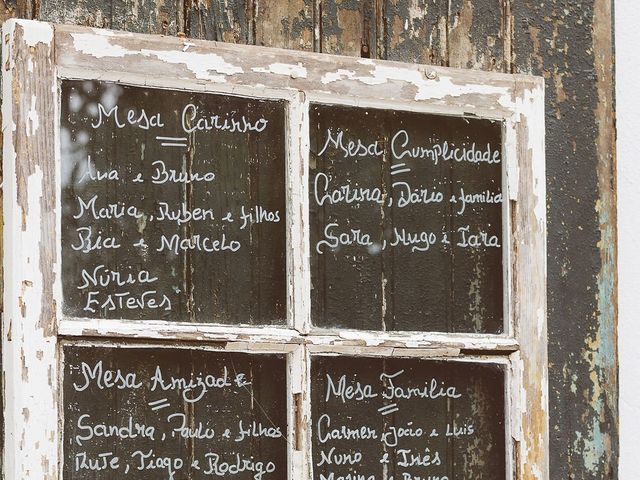 Mesa Carinho
Ana e Bruno
Maria, Ruben e filhos
Bia e Marcelo
Núria
Esteves
Mesa Cumplicidade
Carina, Dário e família
Sara, Hugo e Iara
Mesa Amizade
Sandra, Paulo e filhos
Rute, Tiago e Rodrigo
Mesa Família
Carmen, João e Luis
Nuno e Inês
Marina e Bruno